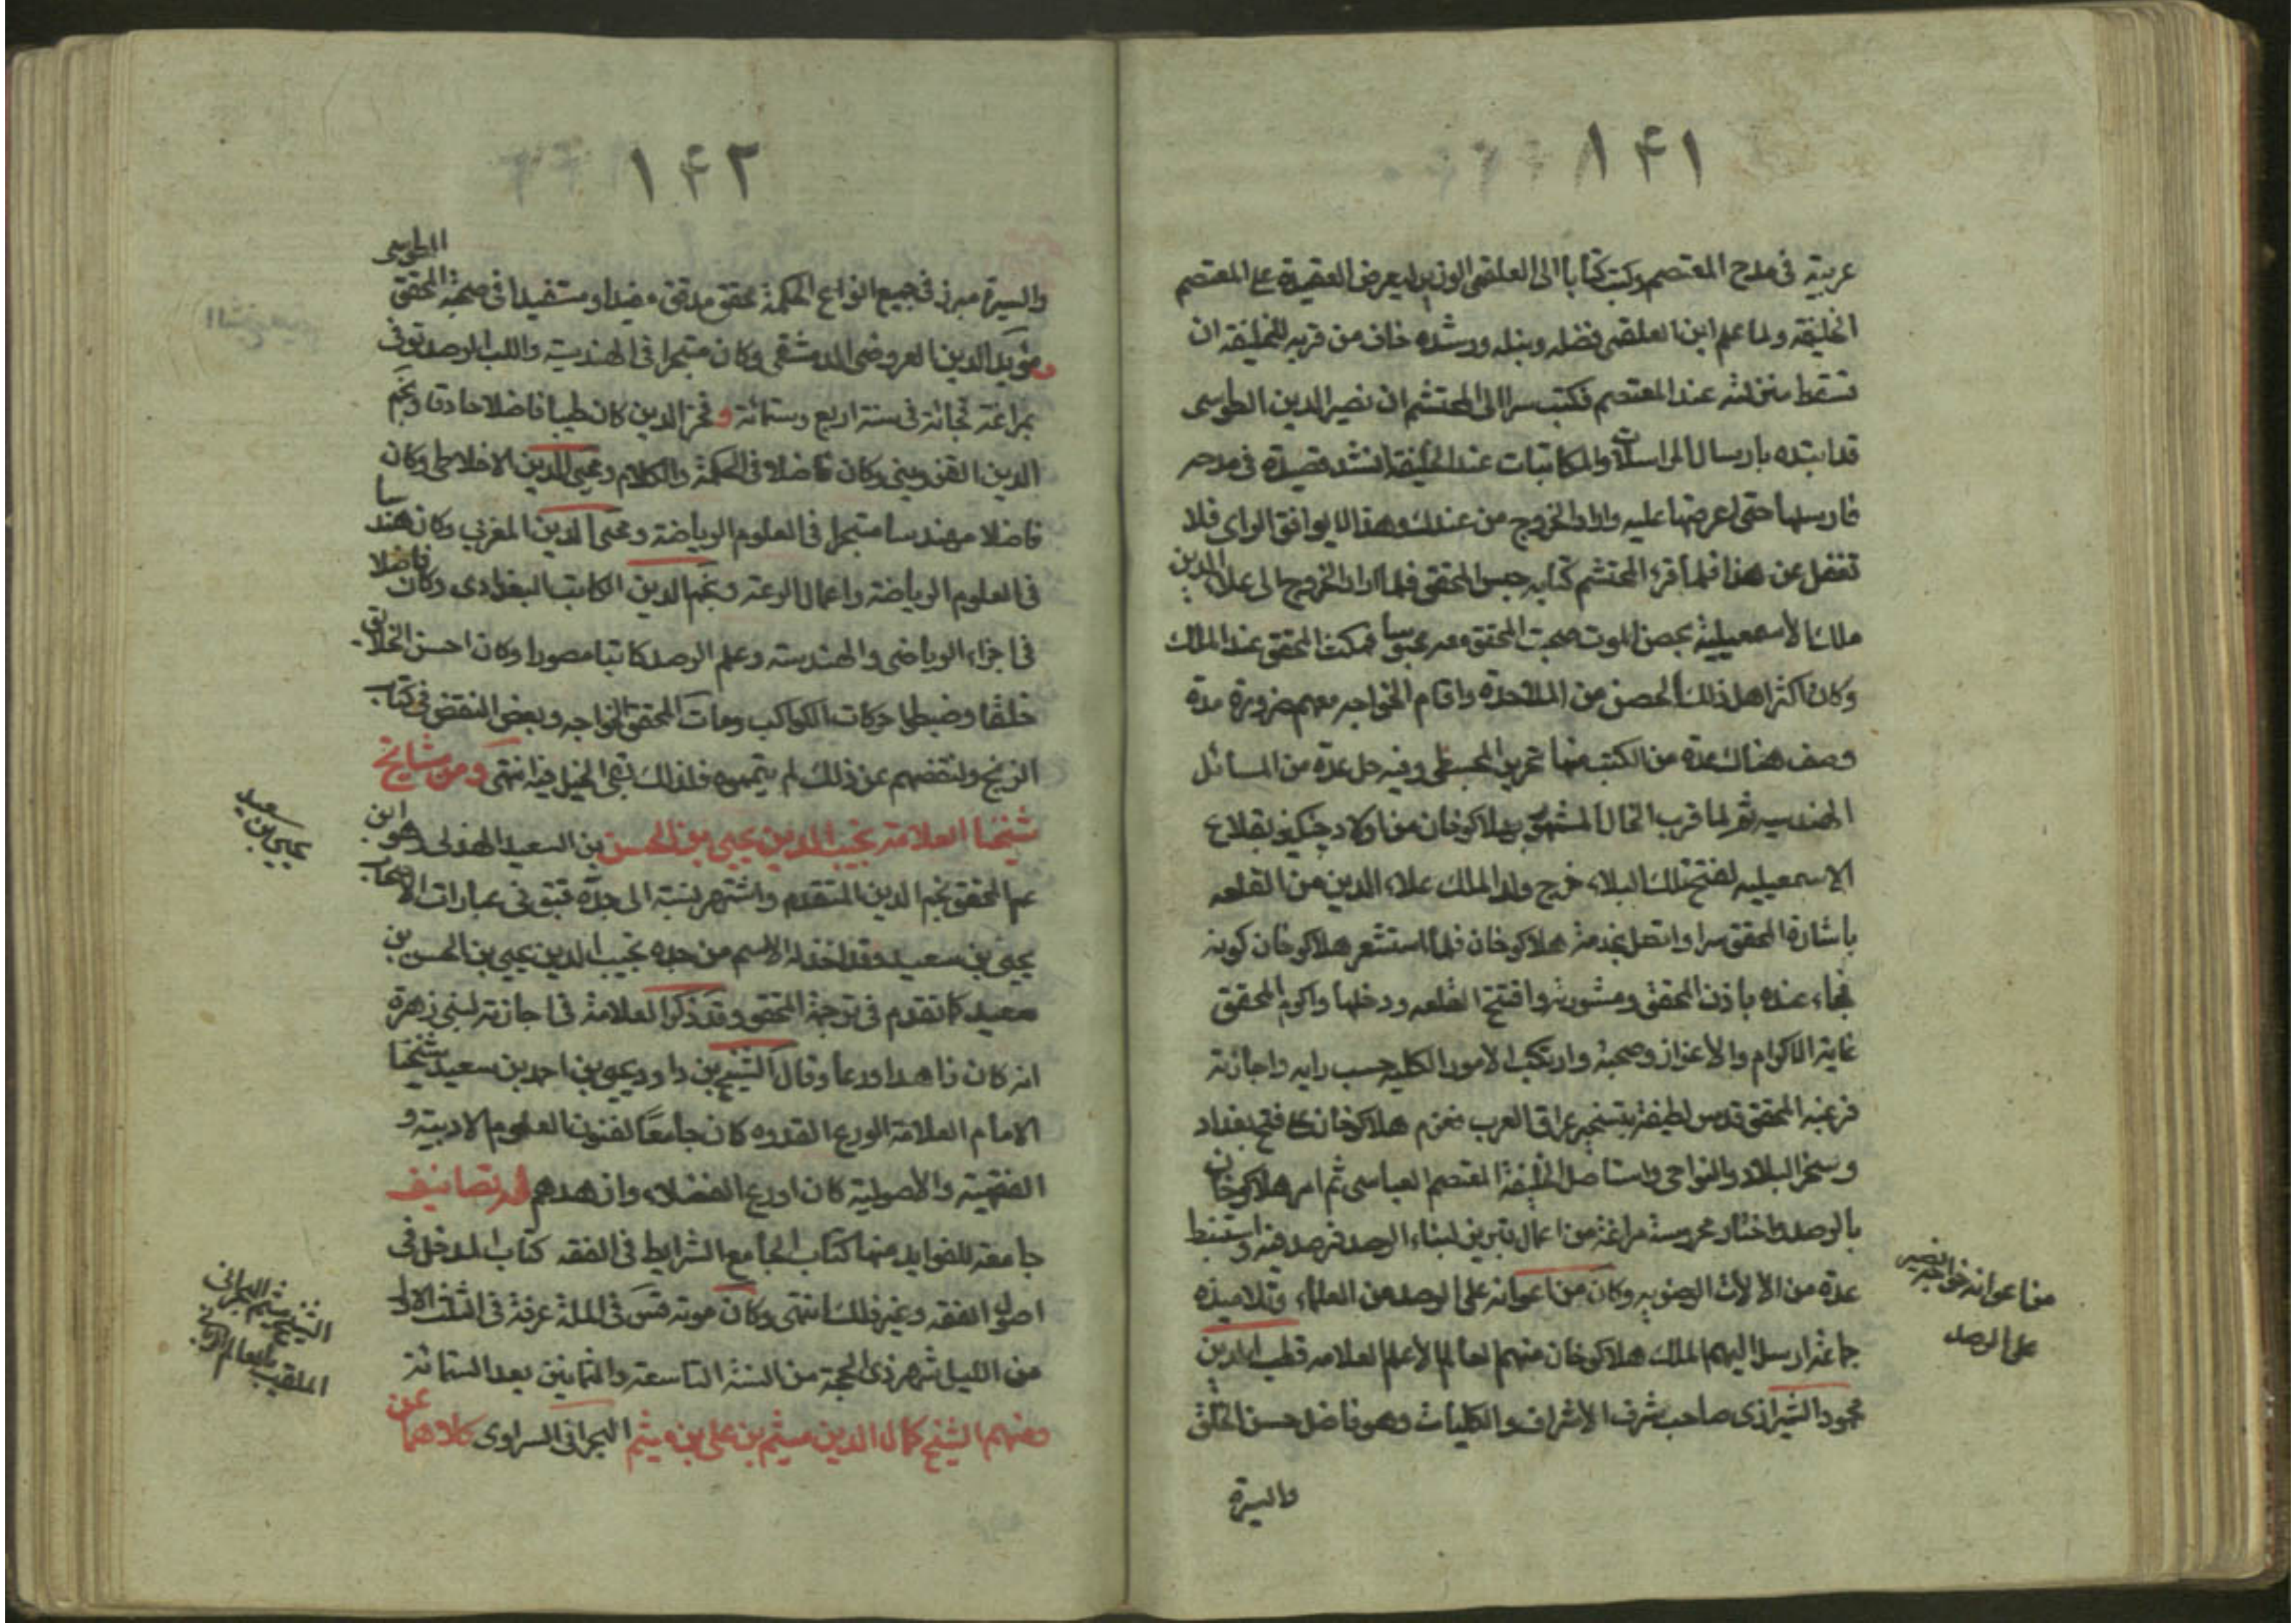 ١۴١
عربية في مدح المعتصم وكتب كتابا الى العلقمى الوزير ليعرض القصيدة على المعتصم
الخليفه ولما علم ابن العلقمى فضله ونبله ورشده خاف من قربه للخليفه ان
تسقط منزلته عند المعتصم فكتب سرا الى المحتشم ان نصير الدين الطوسى
قد ابتده بارسال المراسلات والمكاتبات عند الخليفة وانشد قصيدة فى مدحه
فارسلها حتى اعرضها عليه واراد الخروج من عندك وهذا لا يوافق الراى فلا
تغفل عن هذا فلما قرء المحتشم كتابه حبس المحقق فلما اراد الخروج الى علاء الدين
ملك الاسمعيلية بحصن الموت صحبت المحقق معه محبوسا فمكث المحقق عند الملك
وكان اكثر اهل ذلك الحصن من الملاحدة واقام الخواجه معهم ضرورة مدة
وصنف هناك عدة من الكتب منها تحرير المجسطى وفيه حل عدة من المسائل
الهندسيه ثم لما قرب الخان المشهور بهلاكوخان من اولاد چنكيز بقلاع
الاسمعيليه لفتح تلك البلاد خرج ولد الملك علاء الدين من القلعه
باشارة المحقق سرا واتصل بخدمة هلاكوخان فلما استشعر هلاكوخان كونه
جاء عنده باذن المحقق ومشورته وافتتح القلعه ودخلها واكرم المحقق
غاية الاكرام والاعزاز وصحبه وارتكب الامور الكليه حسب رايه واجازته
فرغبه المحقق قدس لطيفه بتسخير عراق العرب فعزم هلاكوخان كا فتح بغداد
وسخر البلاد والنواحى واستاصل الخليفة المعتصم العباسى ثم امر هلاكوخان
بالرصد واختار محروسة مراغة من اعمال تبريز لبناء الرصد فرصد فيه واستنبط
عدة من الالات الرصديه وكان من اعوانه على الرصد من العلماء وتلاميذه
جماعة ارسل اليهم الملك هلاكوخان منهم العالم الاعلم العلامه قطب الدين
محمود الشيرازى صاحب شرف الاشراف والكليات وهو فاضل حسن الخلق
والسيرة
من اعوانه خواجه نصير
على الرصد
١۴٢
والسيرة مبرز فى جميع انواع الحكمة محقق مدقق مفيدا ومستفيدا فى صحبة المحقق الطوسى
ومؤيد الدين العروضى الدمشقى وكان متبحرا فى الهندسة والات الرصد توفى
بمراغة فجائة فى سنة اربع وستمائة وفخر الدين كان طبيبا فاضلا حاذقا ونجم
الدين القزوينى وكان فاضلا فى الحكمة والكلام ومحيى الدين الاخلاطى وكان
فاضلا مهندسا متبحرا فى العلوم الرياضة ومحيى الدين المغربى وكان مهندسا
فى العلوم الرياضة واعمال الرصد ونجم الدين الكاتب البغدادى وكان فاضلا
فى اجزاء الرياضى والهندسة وعلم الرصد كاتبا مصورا وكان احسن الخلائق
خلقا وضبطوا حركات الكواكب ومات المحقق الخواجه وبعض النقض فى كتاب
الزيج ولنقضهم عن ذلك لم يتمموه فلذلك بقى الخلل فيه انتهى ومن مشايخ
شيخنا العلامة نجيب الدين يحيى بن الحسن بن السعيد الهذلى وهو ابن
عم المحقق نجم الدين المتقدم واشتهر نسبته الى جده فبقى فى عبارات الاصحاب
يحيى بن سعيد وقد اخذ له الاسم من جده نجيب الدين يحيى بن الحسن بن
سعيد كا تقدم فى ترجمة المحقق وقد ذكر العلامة فى اجازته لبنى زهرة
انه كان زاهدا ورعا وقال الشيخ بن داود يحيى بن احمد بن سعيد شيخنا
الامام العلامة الورع القدوه كان جامعا لفنون العلوم الادبية و
الفقهية والاصولية كان اورع الفضلاء وازهدهم له تصانيف
جامعة للفوايد منها كتاب الجامع الشرايط فى الفقه كتاب المدخل فى
اصول الفقه وغير ذلك انتهى وكان موته قس فى الملة عرفة فى الثلث الاول
من الليل شهر ذى الحجة من السنة التاسعة والثمانين بعد الستمائة
ومنهم الشيخ كمال الدين ميثم بن على بن ميثم البحرانى السراوى كلاهما عن
يحيى بن سعيد
الشيخ ميثم البحرانى
الملقب بالعالم الربانى